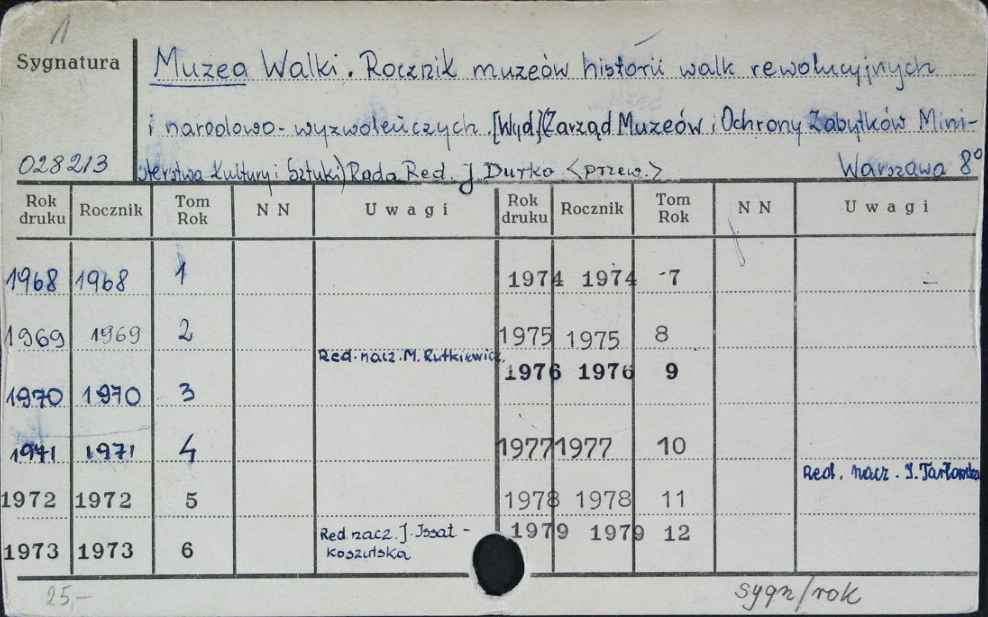 1
Sygnatura
Muzea Walki. Rocznik muzeów historii walk rewolucyjnych
i narodowo-wyzwoleńczych. [Wyd.] (Zarząd Muzeów i Ochrony Zabytków Mini-
028213 sterstwa Kultury i Sztuki) Rada Red. J. Durko <przew.> Warszawa 8°
Rok druku Rocznik Tom Rok N N Uwagi Rok druku Rocznik Tom Rok N N Uwagi
1968 1968 1 1974 1974 7
1969 1969 2 1975 1975 8
Red. nacz. M. Rutkiewicz
1976 1976 9
1970 1970 3
1971 1971 4 1977 1977 10
Red. nacz. I. Tarłowska
1972 1972 5 1978 1978 11
1973 1973 6 Red. nacz. J. Issat- 1979 1979 12
koszutska
25,-
sygn/rok